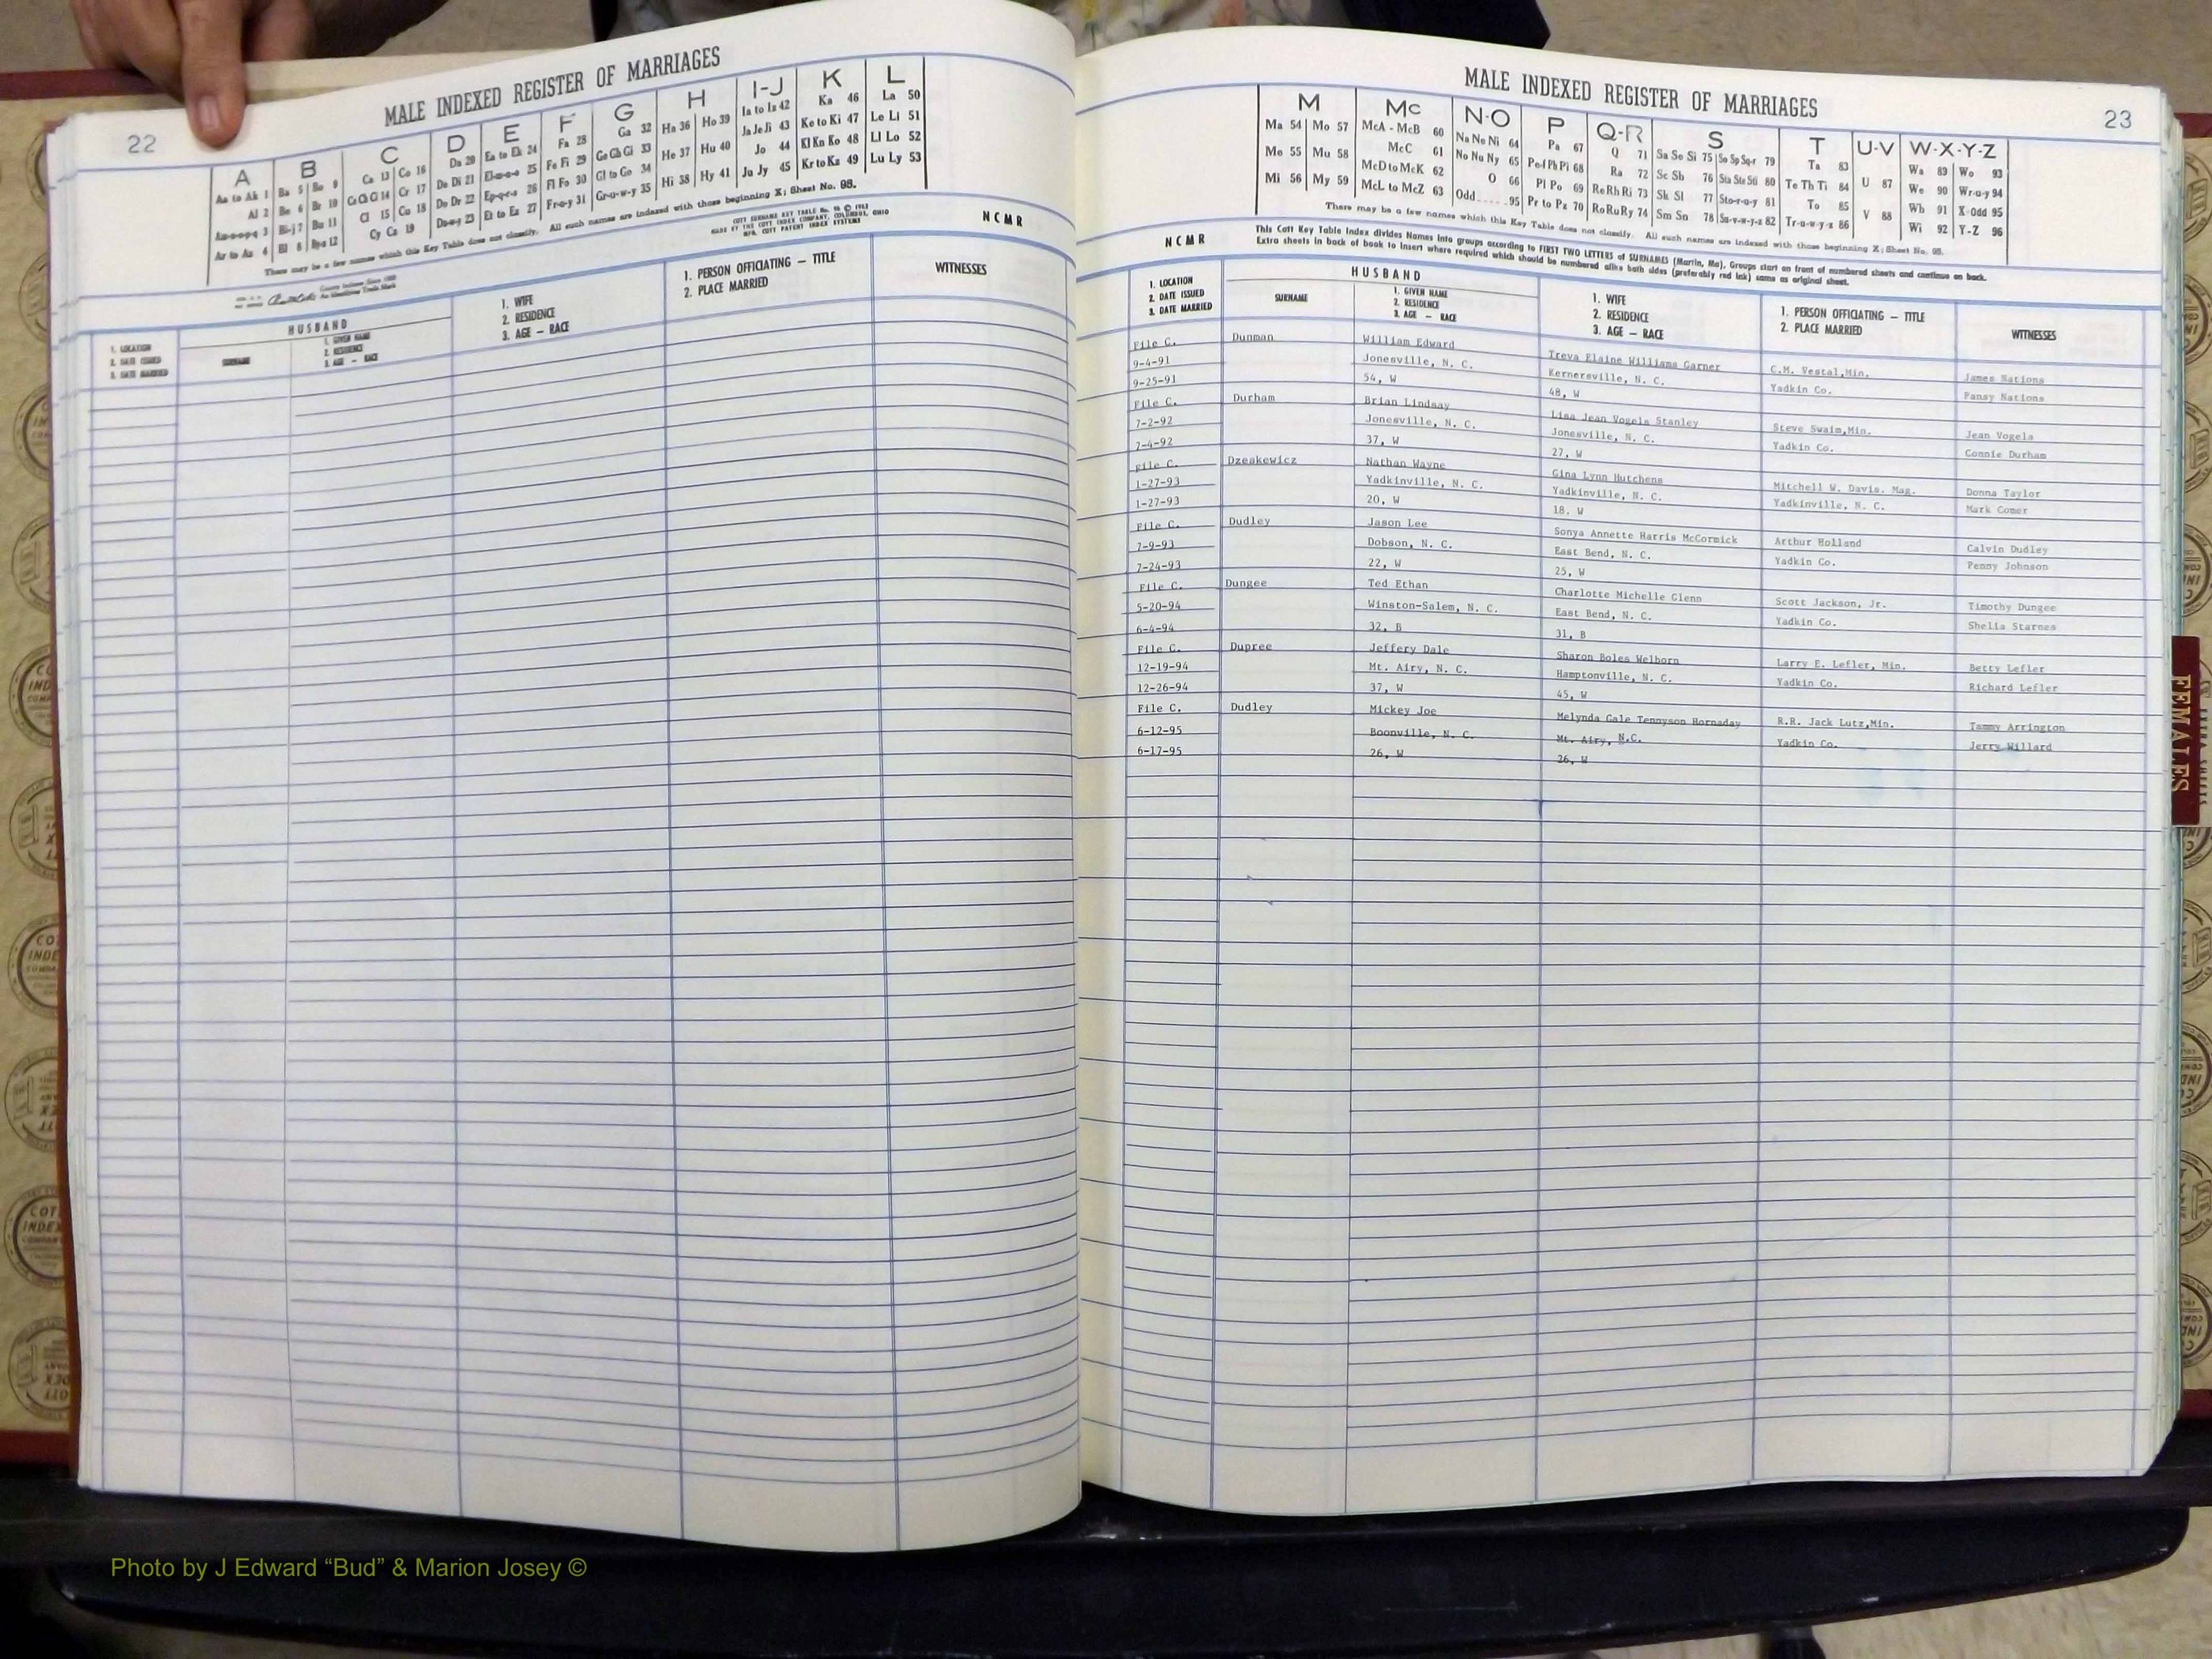 22
MALE INDEXED REGISTER OF MARRIAGES
A B C D E F G H I-J K L
Aa to Ak 1 Ba 5 Bo 9 Ca 13 Co 16 Da 20 Ea to Ek 24 Fa 28 Ga 32 Ha 36 Ho 39 Ia to Iz 42 Ka 46 La 50
Al 2 Be 6 Br 10 Ce Ch Ci 14 Cr 17 De Di 21 El-m-n-o 25 Fe Fi 29 Ge Gh Gi 33 He 37 Hu 40 Ja Je Ji 43 Ke to Ki 47 Le Li 51
Bi-j 7 Bu 11 Cl 15 Cu 18 Do Dr 22 Ep-q-r-s 26 Fl Fo 30 Gl to Go 34 Hi 38 Hy 41 Jo 44 Kl Kn Ko 48 Ll Lo 52
Ar to Az 4 Bl 8 Bya 12 Cy Cz 19 Du-w-y 23 Et to Ez 27 Fr-u-y 31 Gr-u-w-y 35 Ju Jy 45 Kr to Kz 49 Lu Ly 53
There may be a few names which this Key Table does not classify. All such names are indexed with those beginning X; Sheet No. 95.
NCMR
HUSBAND
1. LOCATION
2. DATE ISSUED
3. DATE MARRIED
SURNAME
1. GIVEN NAME
2. RESIDENCE
3. AGE — RACE
1. WIFE
2. RESIDENCE
3. AGE — RACE
1. PERSON OFFICIATING — TITLE
2. PLACE MARRIED
WITNESSES
MALE INDEXED REGISTER OF MARRIAGES
23
M Mc N-O P Q-R S T U-V W-X-Y-Z
Ma 54 Mo 57 McA - McB 60 Na Ne Ni 64 Pa 67 Q 71 Sa Se Si 75 So Sp Sq-r 79 Ta 83 U 87 Wa 89 Wo 93
Me 55 Mu 58 McC 61 No Nu Ny 65 Pe-f Ph Pi 68 Ra 72 Sc Sh 76 Sta Ste Sti 80 Te Th Ti 84 V 88 We 90 Wr-u-y 94
Mi 56 My 59 McD to McK 62 O 66 Pl Po 69 Re Rh Ri 73 Sk Sl 77 Sto-r-u-y 81 To 85 Wh 91 X-Odd 95
McL to McZ 63 Odd 95 Pr to Pz 70 Ro Ru Ry 74 Sm Sn 78 Su-v-w-y-z 82 Tr-u-w-y-z 86 Wi 92 Y-Z 96
There may be a few names which this Key Table does not classify. All such names are indexed with those beginning X; Sheet No. 95.
NCMR
This Cott Key Table Index divides Names into groups according to FIRST TWO LETTERS of SURNAMES (Martin, Ma), Groups start on front of numbered sheets and continue on back.
Extra sheets in back of book to insert where required which should be numbered alike both sides (preferably red ink) same as original sheet.
1. LOCATION
2. DATE ISSUED
3. DATE MARRIED
HUSBAND
SURNAME
1. GIVEN NAME
2. RESIDENCE
3. AGE — RACE
1. WIFE
2. RESIDENCE
3. AGE — RACE
1. PERSON OFFICIATING — TITLE
2. PLACE MARRIED
WITNESSES
File C. Dunman William Edward Treva Elaine Williams Garner C.M. Vestal,Min. James Nations
9-4-91 Jonesville, N. C. Kernersville, N. C. Yadkin Co. Pansy Nations
9-25-91 54, W 48, W
File C. Durham Brian Lindsay Lisa Jean Vogels Stanley Steve Swaim,Min. Jean Vogels
7-2-92 Jonesville, N. C. Jonesville, N. C. Yadkin Co. Connie Durham
7-4-92 37, W 27, W
File C. Dzeakewicz Nathan Wayne Gina Lynn Hutchens Mitchell W. Davis. Mag. Donna Taylor
1-27-93 Yadkinville, N. C. Yadkinville, N. C. Yadkinville, N. C. Mark Comer
1-27-93 20, W 18, W
File C. Dudley Jason Lee Sonya Annette Harris McCormick Arthur Holland Calvin Dudley
7-9-93 Dobson, N. C. East Bend, N. C. Yadkin Co. Penny Johnson
7-24-93 22, W 25, W
File C. Dungee Ted Ethan Charlotte Michelle Glenn Scott Jackson, Jr. Timothy Dungee
5-20-94 Winston-Salem, N. C. East Bend, N. C. Yadkin Co. Shelia Starnes
6-4-94 32, B 31, B
File C. Dupree Jeffery Dale Sharon Boles Welborn Larry E. Lefler, Min. Betty Lefler
12-19-94 Mt. Airy, N. C. Hamptonville, N. C. Yadkin Co. Richard Lefler
12-26-94 37, W 45, W
File C. Dudley Mickey Joe Melynda Gale Tennyson Hornaday R.R. Jack Lutz,Min. Tammy Arrington
6-12-95 Boonville, N. C. Mt. Airy, N.C. Yadkin Co. Jerry Willard
6-17-95 26, W 26, W
FEMALES
Photo by J Edward “Bud” & Marion Josey ©